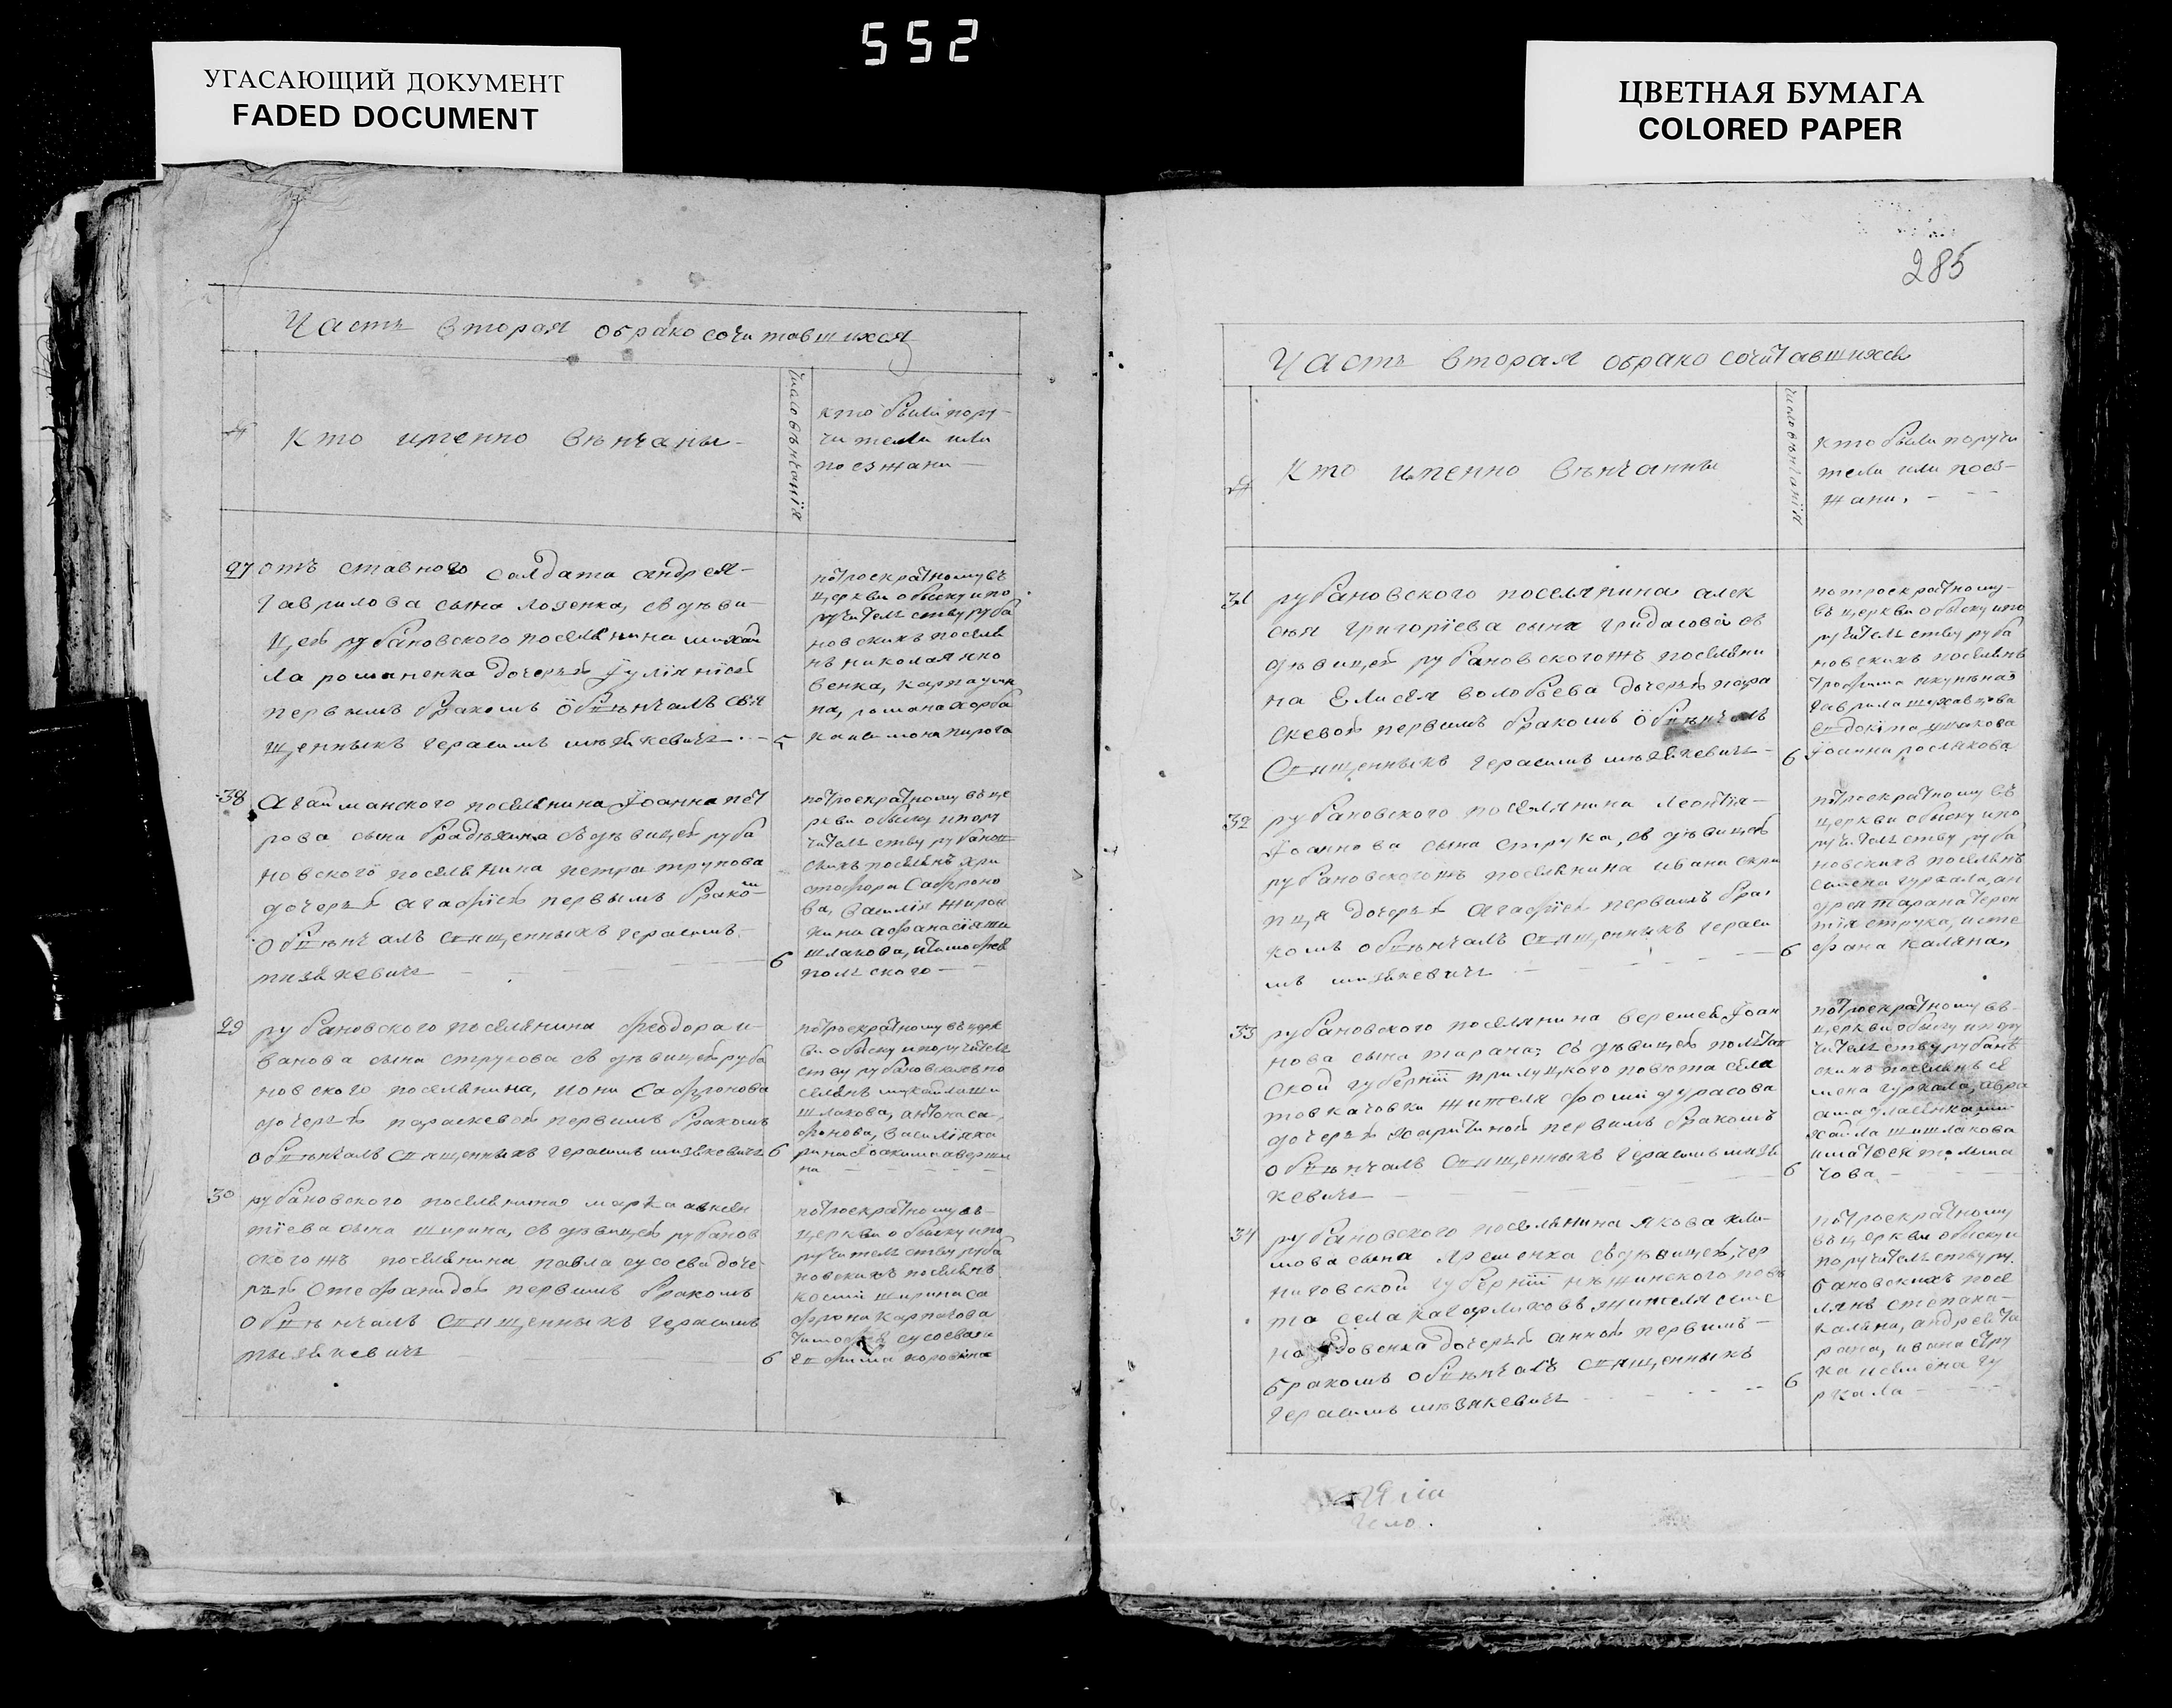 552
УГАСАЮЩИЙ ДОКУМЕНТ
FADED DOCUMENT
ЦВЕТНАЯ БУМАГА
COLORED PAPER
Часть вторая обрако сочитавшихся
№
Кто именно вѣнчаны
число вѣнчанія
кто были пору-
чители или
поезжани
27
отъ ставного солдата андрея
гаврилова сына лозенка, съ дѣви-
цей рубановского поселянина михаи
ла романенка дочерью Їуліянїей
первымъ бракомъ обвѣнчалъ свя
щенникъ герасимъ
5
потроекратному въ
церкви обыску и по
ручительству руба
новскихъ поселя
нъ николая яко
венка, карпа
на, романа
38
Агайманского поселянина Їоанна пет
рова сына съ дѣвицей руба
новского поселянина петра трунова
дочерью агафїей первымъ браком
обвѣнчалъ священникъ герасимъ
6
потроекратному въ це
ркви обыску и пору
чительству рубанов
скихъ поселянъ хри
стофора Сафроно
ва, василія
кина афанасїя ши
шлакова, и тимофея
польского
29
рубановского поселянина феодора и
ванова сына струкова съ дѣвицей руба
новского поселянина, ионы Сафронова
дочерью параскевой первымъ бракомъ
обвѣнчалъ священникъ герасимъ
6
потроекратному въ церк
ви обыску и поручитель
ству рубановскихъ по
селянъ михаила ши
шлакова, антона са-
фронова, василія ка
рина Їоакима аверши
на
30
рубановского поселянина марка авксен
тїева сына ширина, съ дѣвицей рубанов
ского жъ поселянина павла сусоева доче-
рью Стефанидой первымъ бракомъ
обвѣнчалъ священникъ герасимъ
6
потроекратному въ
церкви обыску и по
ручительству руба
новскихъ поселянъ
косми ширина са
фрона карпачова
тимофея сусоева и
ефима коровина
285
Часть вторая обрако сочитавшихся
№
Кто именно вѣнчанны
число вѣнчанія
кто были поручи
тели или поез-
жани.
31
рубановского поселянина алек
сѣя григорїева сына гридасова съ
дѣвицей рубановского жъ поселяни
на Елисея воловьева дочерью пара
скевой первымъ бракомъ обвѣнчалъ
Священникъ герасимъ
6
потроекратному
въ церкви обыску и по
ручительству руба
новскихъ поселянъ
трофима
гаврила
евдокима ушакова
Їоанна рослякова
32
рубановского поселянина леонтїя
Їоаннова сына струка, съ дѣвицей
рубановского жъ поселянина ивана скри
пця дочерью агафїей первымъ бра
комъ обвѣнчалъ священникъ гераси
мъ
6
потроекратному въ
церкви обыску и по
ручительству руба
новскихъ поселянъ
семена гуркала, ан
дрея тарана терен
тїя струка, и сте
фана каляна,
33
рубановского поселянина веремея Їоан
нова сына тарана, съ дѣвицей полтав
ской губернїи прилуцкого повѣта села
товкачовки жителя фоми дурасова
дочерью харитиной первымъ бракомъ
обвѣнчалъ священникъ герасимъ
кевичъ
6
потроекратному въ
церкви обыску и пору
чительству рубанов
скихъ поселянъ се
мена гуркала, авра
ама
хаила шишлакова
и матфея толма
чова
34
рубановского поселянина якова кли-
мова сына яременка съ дѣвицей, чер
ниговской губернїи нѣжинского повѣ
та села жителя семе
на вдовенка дочерью анной первымъ
бракомъ обвѣнчалъ священникъ
герасимъ
6
потроекратному
въ церкви обыску и
поручительству ру
бановскихъ посе
лянъ степана
каляна, андрея та
рана, ивана стру
ка и семена гу
ркала